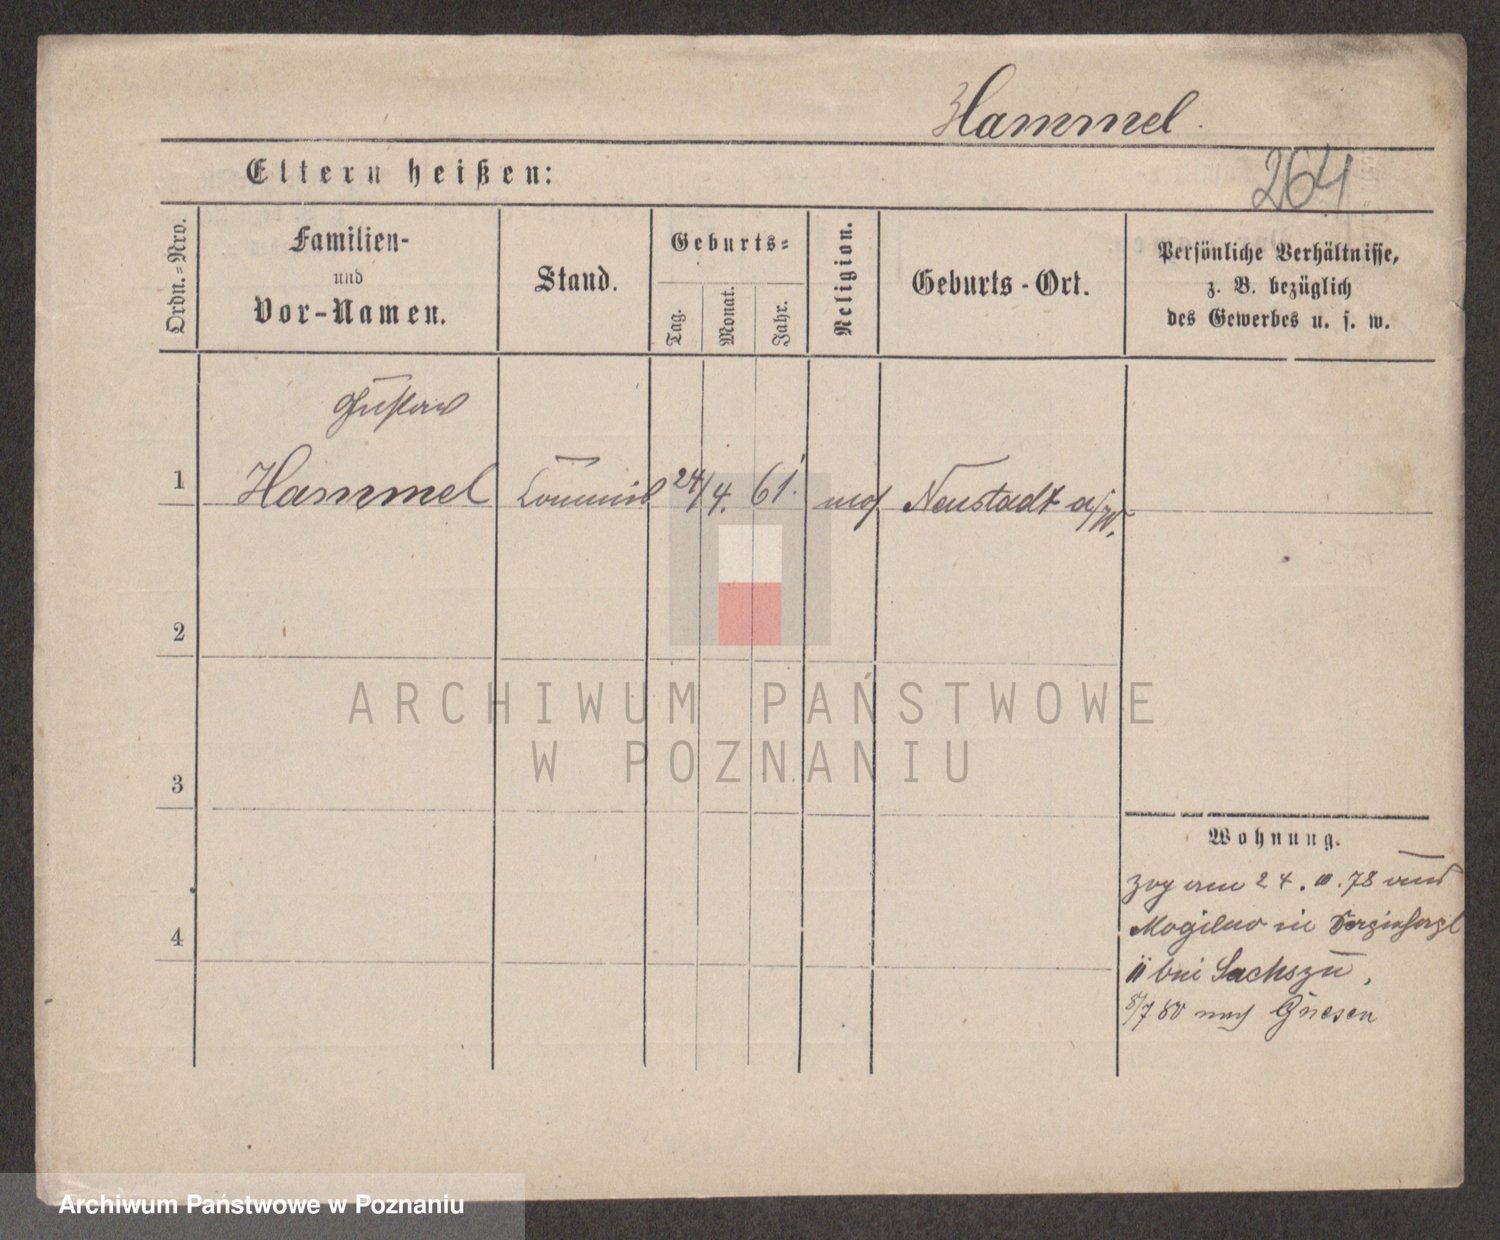 Hammel
264
Eltern heißen:
Ordn.=Nro.
Familien-
und
Vor-Namen.
Stand.
Geburts=
Tag.
Monat.
Jahr.
Religion.
Geburts-Ort.
Persönliche Verhältnisse,
z. B. bezüglich
des Gewerbes u. s. w.
Gustav
1 Hammel Commis 24/4. 61. mos. Neustadt a/W.
2
3
4
Wohnung.
zog am 24. 11. 78 aus
Mogilno in
11 bei Sachs zu,
8/7 80 nach Gnesen
ARCHIWUM PAŃSTWOWE
W POZNANIU
Archiwum Państwowe w Poznaniu